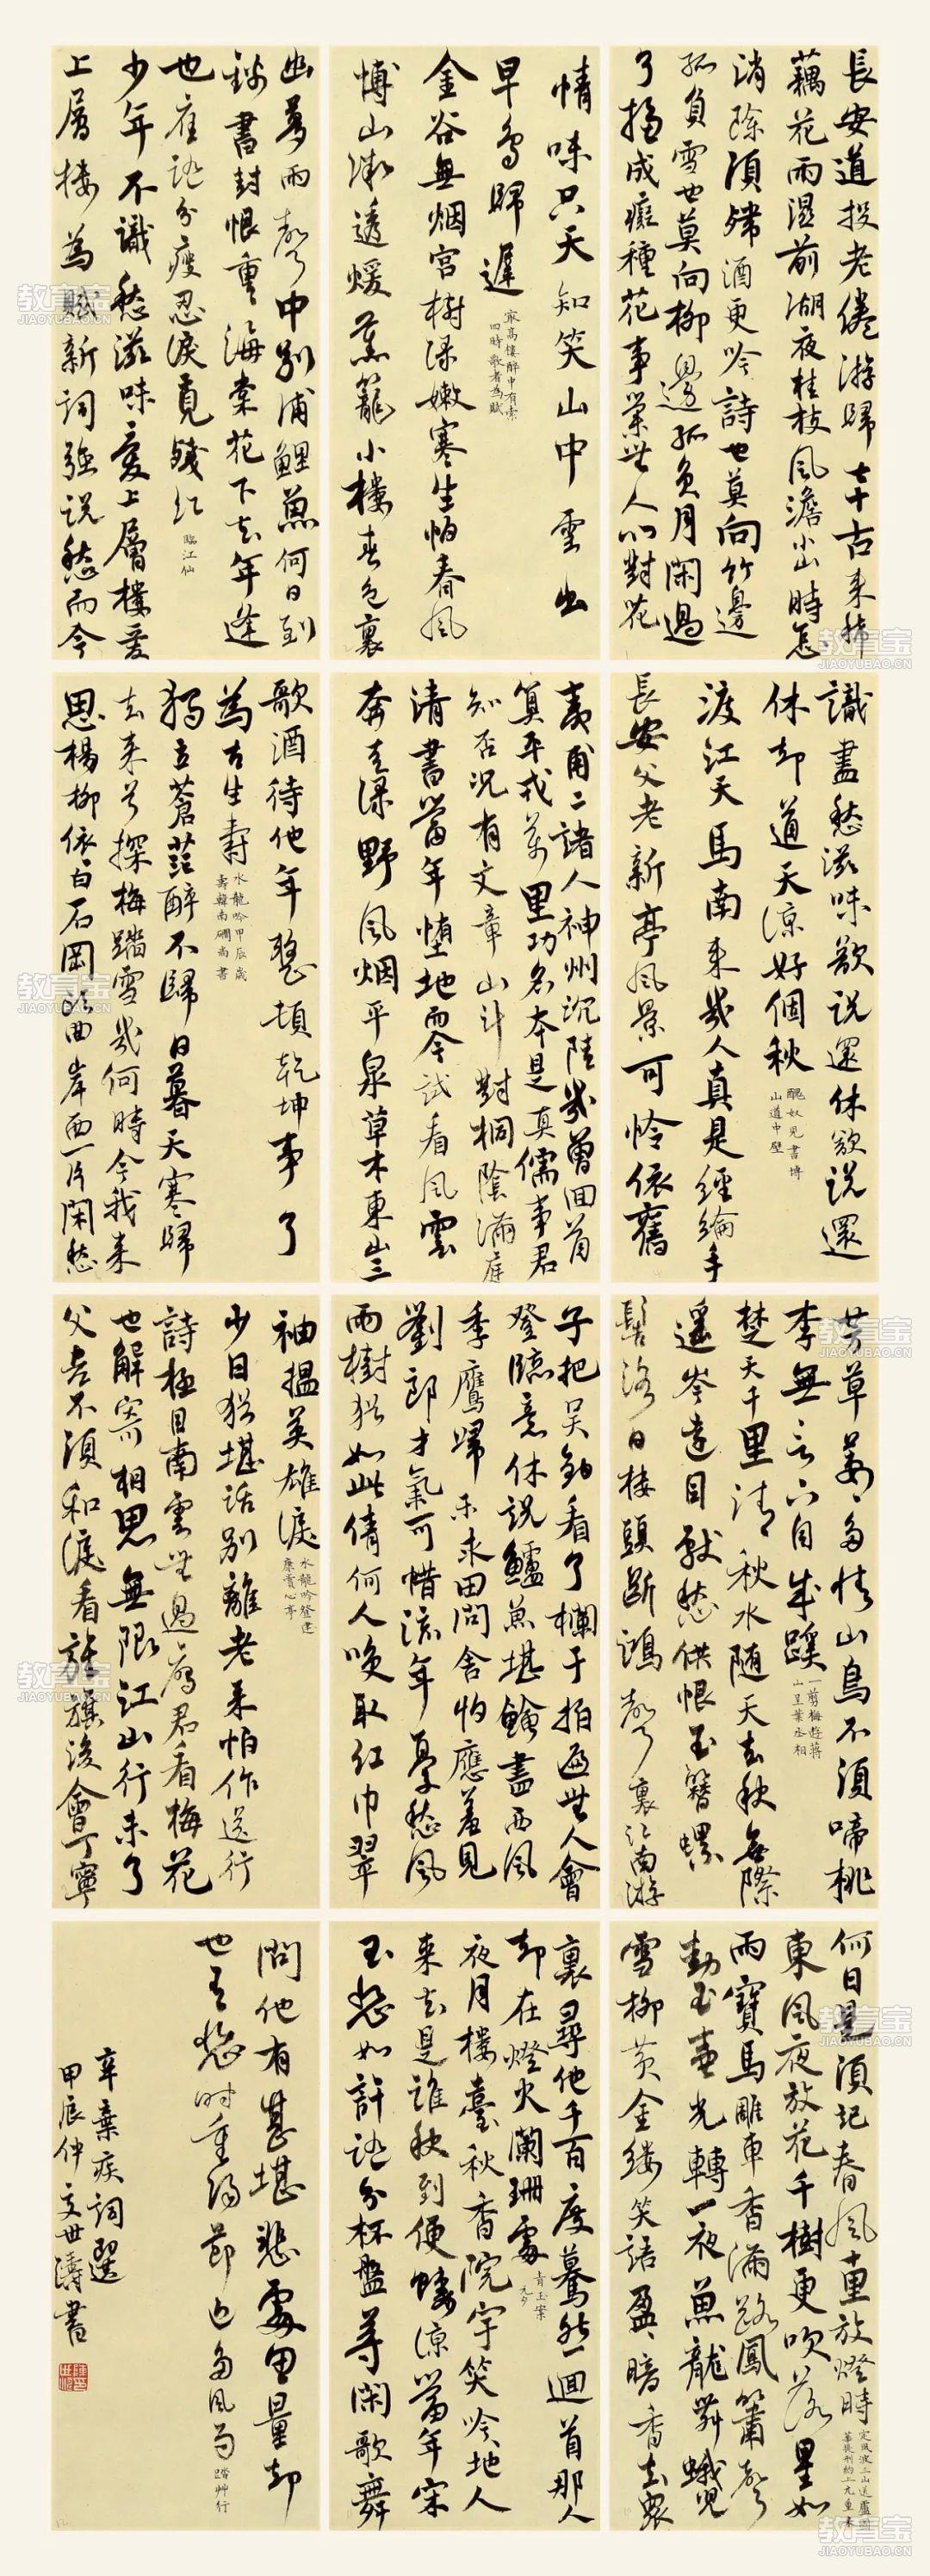 長安道投老倦游歸七十古来稀
藕花雨湿前湖夜桂枝風澹小山時怎
消除須殢酒更吟詩也莫向竹邊
孤負雪也莫向柳邊孤負月閑過
了捴成癡種花事業無人問對花
情味只天知笑山中雲出
早鳥歸遲
最高樓醉中有索
四時歌者為賦
金谷無烟宮樹緑嫩寒生怕春風
博山微透煖薰籠小樓春色裏
幽夢雨聲中別浦鯉魚何日到
錦書封恨重重海棠花下去年逢
也應随分瘦忍淚覓殘紅
臨江仙
少年不識愁滋味愛上層樓愛
上層樓為賦新詞強説愁而今
識盡愁滋味欲説還休欲説還
休却道天涼好個秋
醜奴兒書博
山道中壁
渡江天馬南来幾人真是經綸手
長安父老新亭風景可怜依舊
夷甫二諸人神州沉陸幾曾回首
算平戎萬里功名本是真儒事君
知否況有文章山斗對桐陰滿庭
清晝當年墮地而今試看風雲
奔走緑野風烟平泉草木東山
歌酒待他年整頓乾坤事了
為先生壽
水龍吟甲辰歲
壽韓南礀尚書
獨立蒼茫醉不歸日暮天寒歸
去来兮探梅踏雪幾何時今我来
思楊柳依白石岡頭曲岸西一片閑愁
芳草萋々多情山鳥不須啼桃
李無言下自成蹊
一剪梅遊蔣
山呈葉丞相
楚天千里清秋水随天去秋無際
遥岑遠目獻愁供恨玉簪螺
髻落日樓頭斷鴻聲裏江南游
子把吴鈎看了欄干拍遍無人會
登臨意休説鱸魚堪鱠盡西風
季鷹歸未求田問舍怕應羞見
劉郎才氣可惜流年憂愁風
雨樹猶如此倩何人喚取紅巾翠
袖揾英雄淚
水龍吟登建
康賞心亭
少日猶堪話別離老来怕作送行
詩極目南雲無過雁君看梅花
也解寄相思無限江山行未了
父老不須和淚看旌旗後會丁寧
何日是須記春風十里放燈時
定風波三山送盧國
華提刑約上元重来
東風夜放花千樹更吹落星如
雨寶馬雕車香滿路鳳簫聲
動玉壺光轉一夜魚龍舞蛾兒
雪柳黄金縷笑語盈々暗香去衆
裏尋他千百度驀然回首那人
却在燈火闌珊處
青玉案
元夕
夜月樓臺秋香院宇笑吟地人
来去是誰秋到便凄涼當年宋
玉悲如許随分杯盤等閑歌舞
問他有甚堪悲處思量却
也有悲時重陽節近多風雨
踏莎行
辛棄疾詞選
甲辰仲世濤書
教育宝
JIAOYUBAO.CN